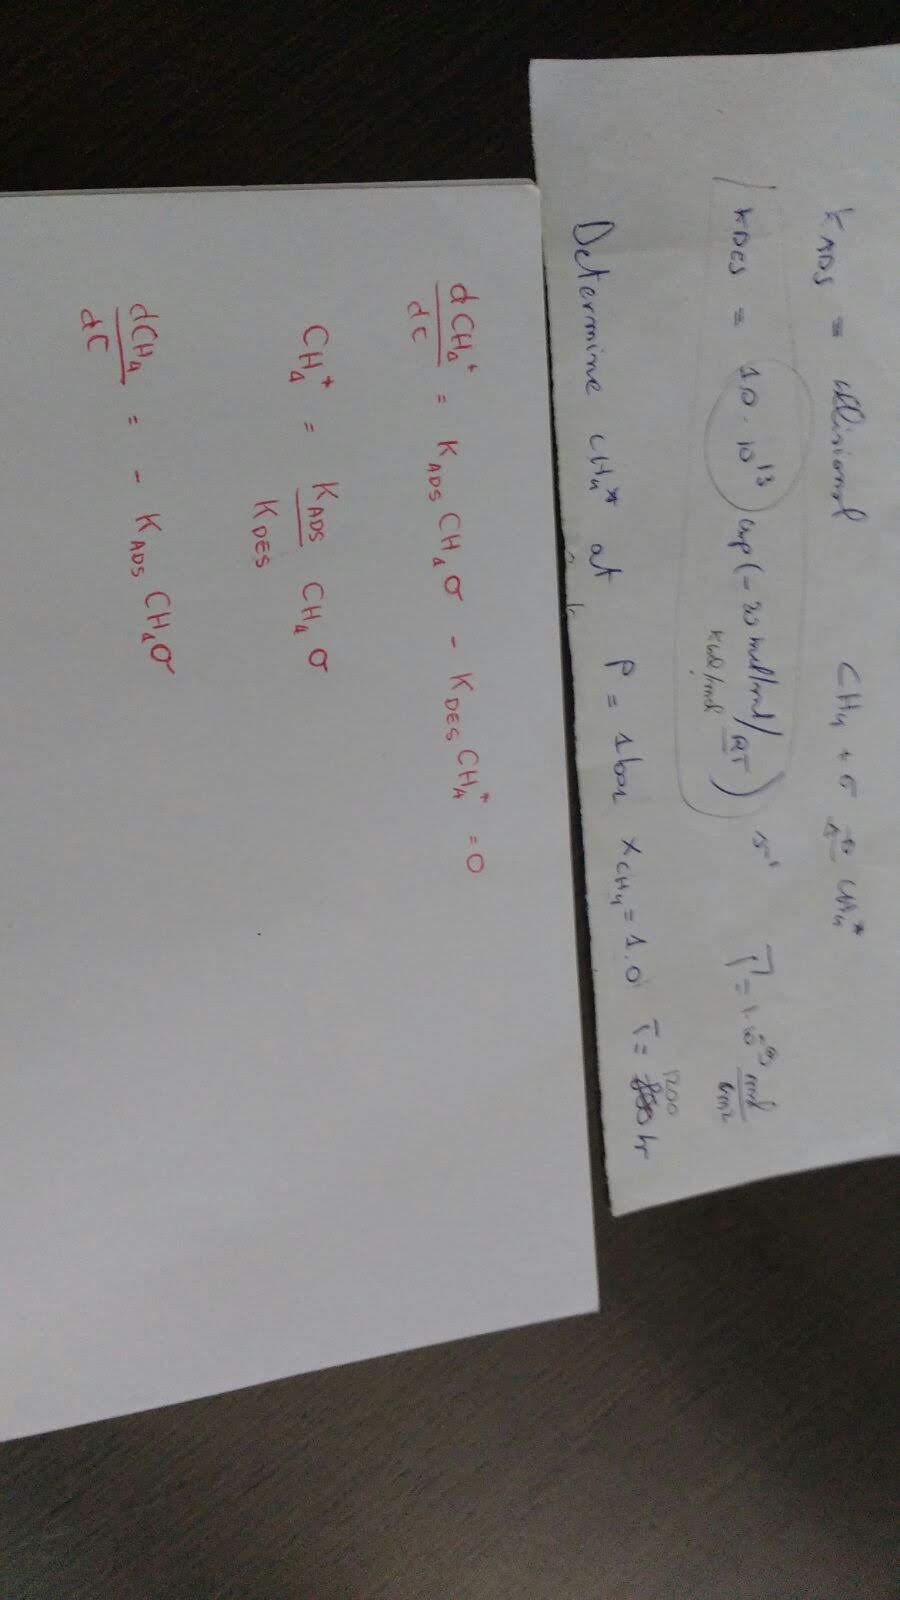 K ADS = collisional CH₄ + σ ⇄ CH₄*
K DES = 1.0 · 10¹³ exp(- 20 /RT) s⁻¹ Γ = 1·10⁻⁹ mol/cm²
kcal/mol
Determine CH₄* at P = 1 bar x CH₄ = 1.0 T = 1200 K
dCH₄*/dt = K ADS CH₄ σ - K DES CH₄* = 0
CH₄* = K ADS/K DES CH₄ σ
dCH₄/dt = - K ADS CH₄ σ